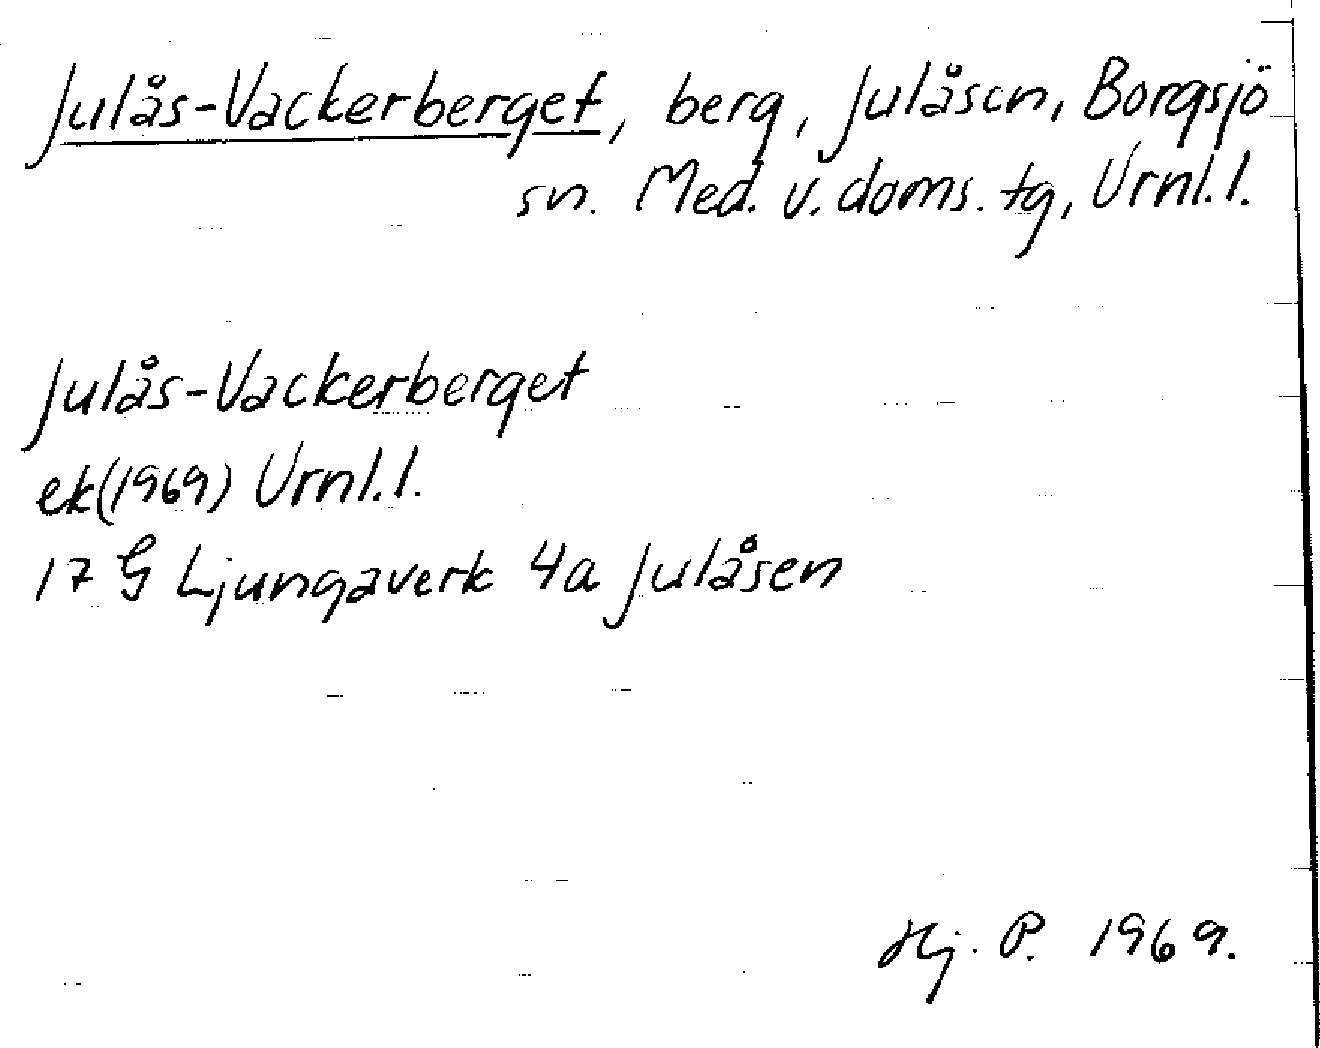 Julås-Vackerberget, berg, Julåsen, Borgsjö
sn. Med. v. doms. tg, Vrnl. l.
Julås-Vackerberget
ek (1969) Vrnl. l.
17 G Ljungaverk 4a Julåsen
Hj. P. 1969.